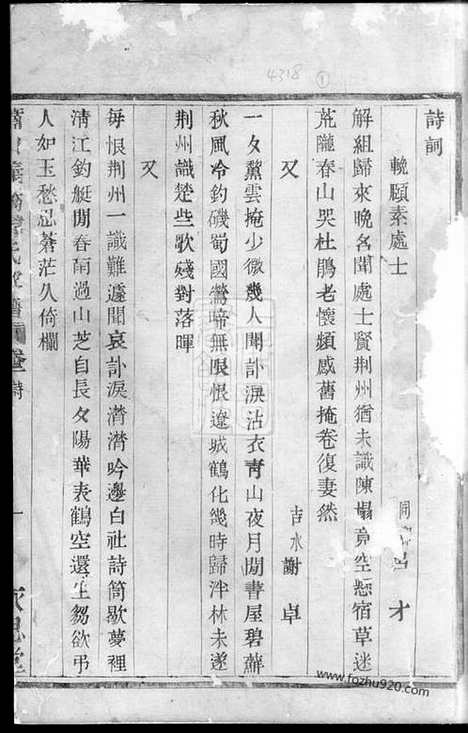 4318
1
詩詞
輓顧素處士
同
才
解組歸來晚名聞處士賢荆州猶未識陳榻竟空懸宿草迷
荒隴春山哭杜鵑老懷頻感舊掩卷復凄然
又
吉水謝 卓
一夕薰雲掩少微幾人聞訃淚沾衣靑山夜月閒書屋碧蘚
秋風冷釣磯蜀國鶯啼無限恨遼城鶴化幾時歸泮林未遂
荆州識楚些歌殘對落暉
又
每恨荆州一識難遽聞哀訃淚濟濟吟邊白社詩筒歇夢裡
淸江釣艇閒春雨過山芝自長夕陽華表鶴空還生芻欲弔
人如玉愁忍蒼茫久倚欄
蕭山
氏
譜
卷
詩
一
思堂
www.fozhu920.com